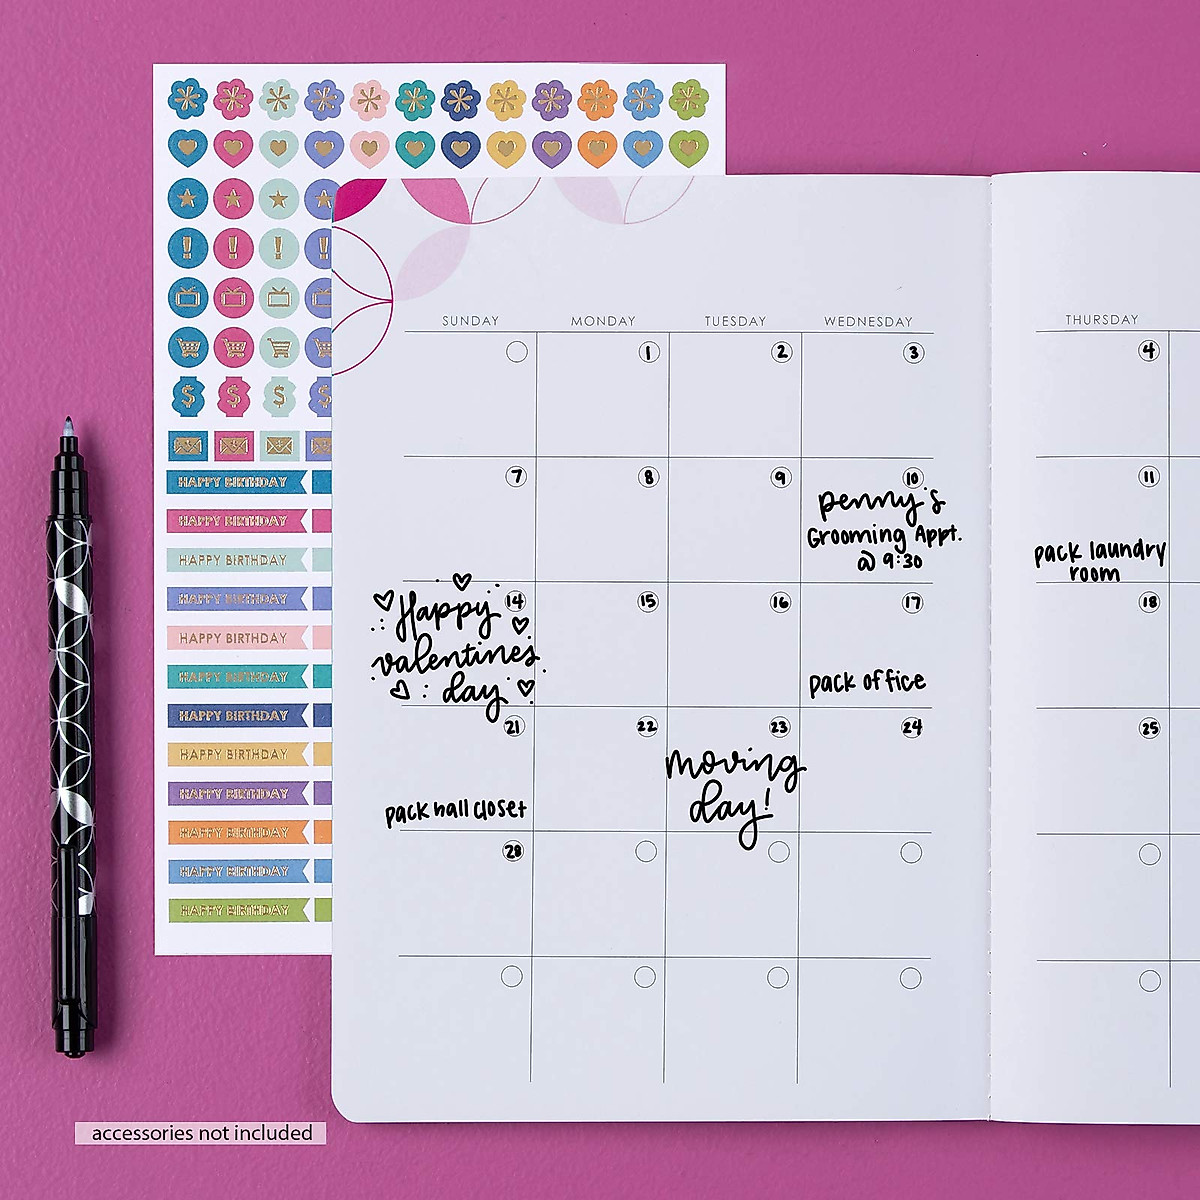 SUNDAY MONDAY TUESDAY WEDNESDAY THURSDAY
1 2 3 4
7 8 9 10 11
penny's
Grooming Appt.
@ 9:30
pack laundry
room
14 15 16 17 18
Happy
valentines
day
pack office
21 22 23 24 25
moving
day!
pack hall closet
28
HAPPY BIRTHDAY
HAPPY BIRTHDAY
HAPPY BIRTHDAY
HAPPY BIRTHDAY
HAPPY BIRTHDAY
HAPPY BIRTHDAY
HAPPY BIRTHDAY
HAPPY BIRTHDAY
HAPPY BIRTHDAY
HAPPY BIRTHDAY
HAPPY BIRTHDAY
HAPPY BIRTHDAY
accessories not included